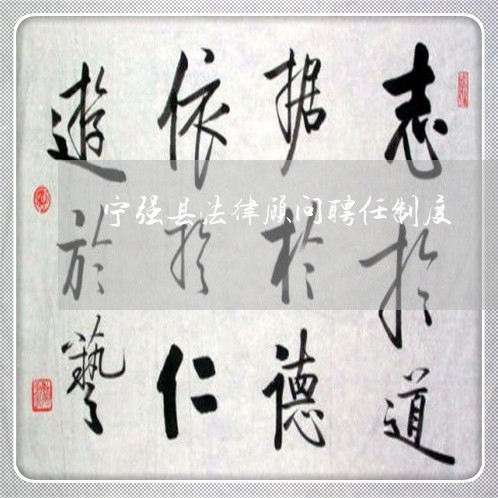 志於道
据於德
依於仁
遊於藝
宁强县法律顾问聘任制度